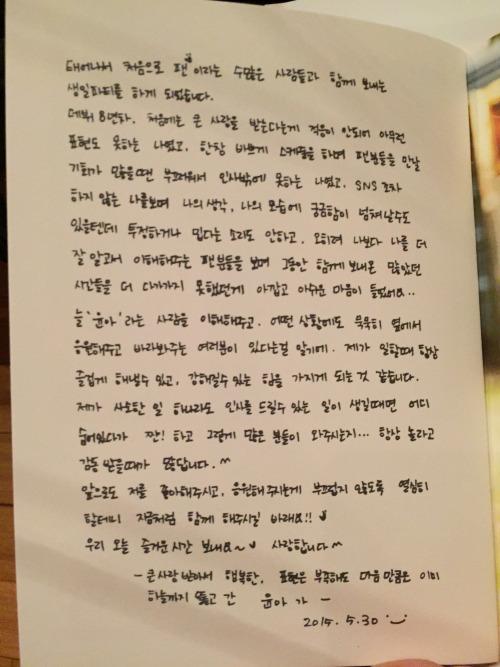 태어나서 처음으로 팬이라는 수많은 사람들과 함께 보내는
생일파티를 하게 되었습니다.
데뷔 8년차. 처음에는 큰 사랑을 받는다는게 적응이 안되어 아무런
표현도 못하는 나였고, 한창 바쁘게 스케줄을 하며 팬분들을 만날
기회가 많을땐 부끄러워서 인사밖에 못하는 나였고, SNS 조차
하지 않는 나를보며 나의 생각, 나의 모습에 궁금함이 넘쳐날수도
있을텐데 투정하거나 밉다는 소리도 안하고, 오히려 나보다 나를 더
잘 알고서 이해해주는 팬분들을 보며 그동안 함께 보내온 많았던
시간들을 더 다가가지 못했던게 아깝고 아쉬운 마음이 들었어요..
늘 '윤아'라는 사람을 이해해주고, 어떤 상황에도 묵묵히 옆에서
응원해주고 바라봐주는 여러분이 있다는걸 알기에. 제가 일할때 항상
즐겁게 해낼수 있고, 강해질수 있는 힘을 가지게 되는 것 같습니다.
제가 사소한 일 하나라도 인사를 드릴수 있는 일이 생길때면 어디
숨어있다가 짠! 하고 그렇게 많은 분들이 와주시는지... 항상 놀라고
감동 받을때가 많답니다.^^
앞으로도 저를 좋아해주시고, 응원해주시는게 부끄럽지 않도록 열심히
할테니 지금처럼 함께 해주시길 바래요!! ♥
우리 오늘 즐거운시간 보내요~♥ 사랑합니다^^
- 큰사랑 받아서 행복한, 표현은 부족해도 마음만큼은 이미
하늘까지 뚫고 간 윤아 가 -
2015. 5.30 :-)